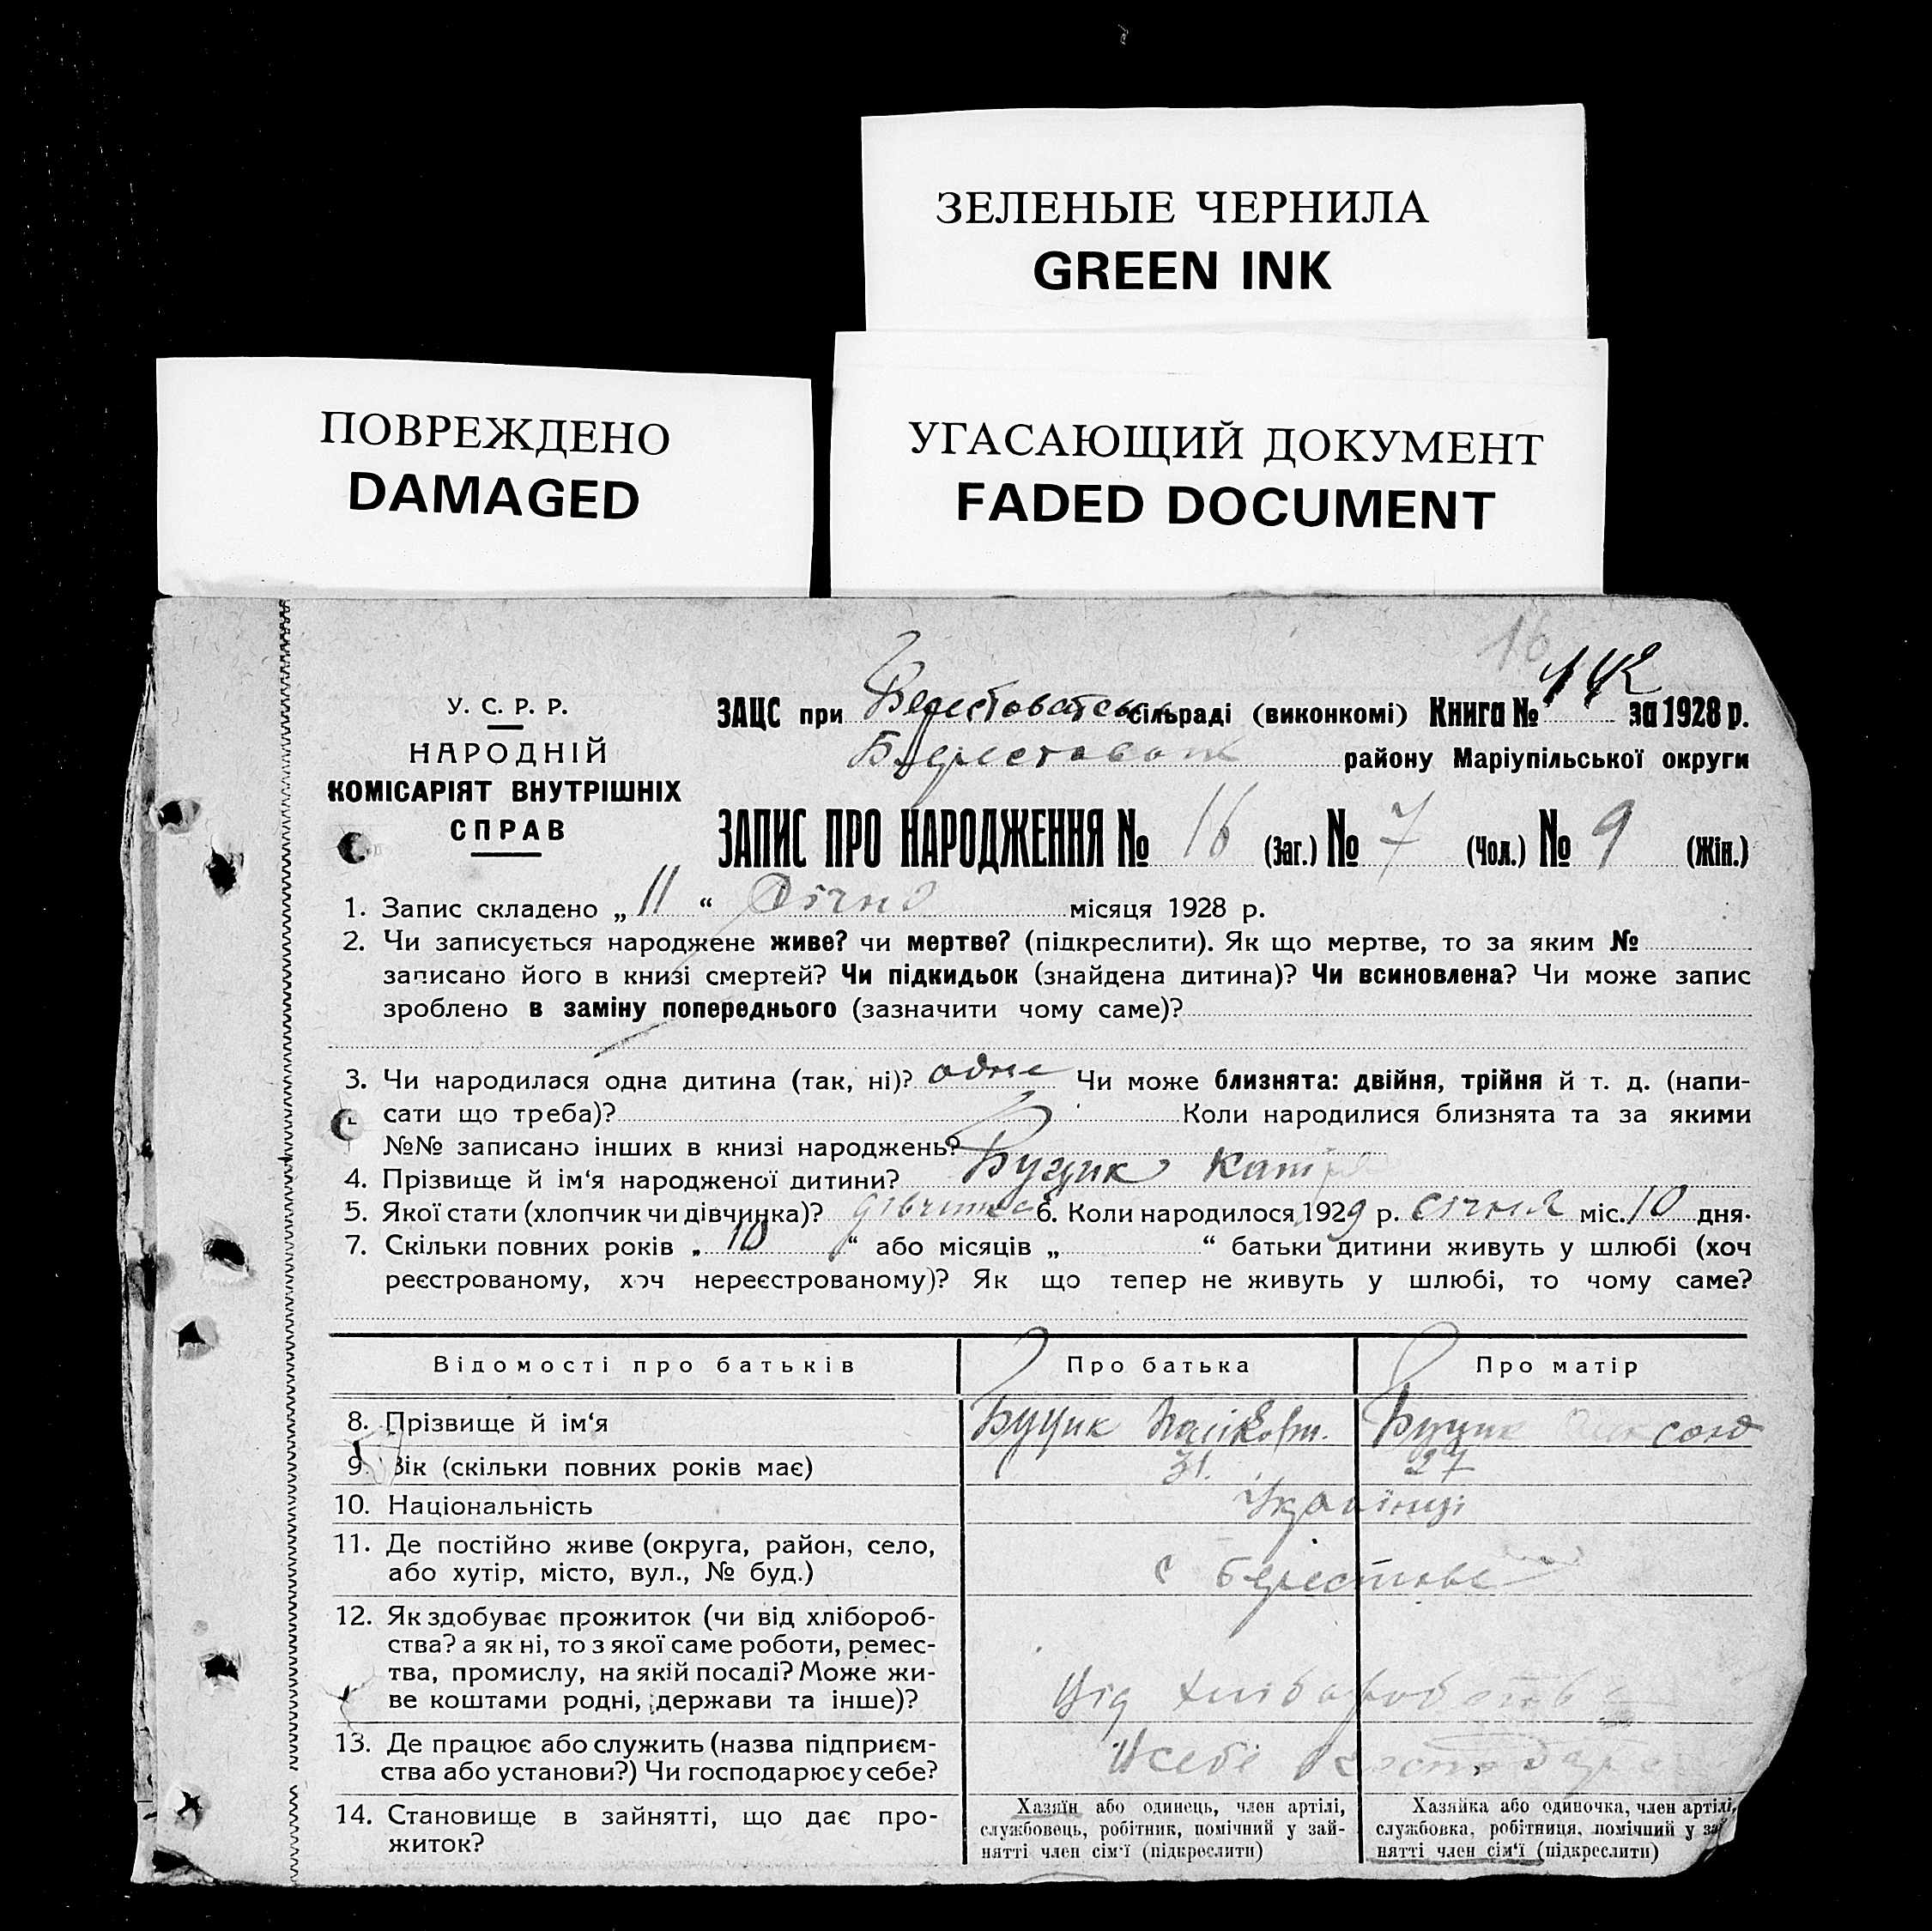 ЗЕЛЕНЫЕ ЧЕРНИЛА
GREEN INK
ПОВРЕЖДЕНО
DAMAGED
УГАСАЮЩИЙ ДОКУМЕНТ
FADED DOCUMENT
16
У. С. Р. Р.
НАРОДНІЙ
КОМІСАРІЯТ ВНУТРІШНІХ
СПРАВ
ЗАЦС при сільраді (виконкомі) Книга № за 1928 р.
району Маріупільської округи
ЗАПИС ПРО НАРОДЖЕННЯ № 16 (Заг.) № 7 (Чол.) № 9 (Жін.)
1. Запис складено „ 11 “ Січня місяця 1928 р.
2. Чи записується народжене живе? чи мертве? (підкреслити). Як що мертве, то за яким №
записано його в книзі смертей? Чи підкидьок (знайдена дитина)? Чи всиновлена? Чи може запис
зроблено в заміну попереднього (зазначити чому саме)?
3. Чи народилася одна дитина (так, ні)? одна Чи може близнята: двійня, трійня й т. д. (напи-
сати що треба)? Коли народилися близнята та за якими
№№ записано інших в книзі народжень?
4. Прізвище й ім‘я народженої дитини? Буцик
5. Якої стати (хлопчик чи дівчинка)? дівчинка 6. Коли народилося 1929 р. січня міс. 10 дня.
7. Скільки повних років „ 10 “ або місяців „ “ батьки дитини живуть у шлюбі (хоч
реєстрованому, хоч нереєстрованому)? Як що тепер не живуть у шлюбі, то чому саме?
Відомості про батьків Про батька Про матір
8. Прізвище й ім‘я Буцик Буцик
9. Вік (скільки повних років має) 31. 27
10. Національність Українці
11. Де постійно живе (округа, район, село,
або хутір, місто, вул., № буд.) с Берестове
12. Як здобуває прожиток (чи від хлібороб-
ства? а як ні, то з якої саме роботи, ремес-
тва, промислу, на якій посаді? Може жи-
ве коштами родні, держави та інше)? Від хліборобства
13. Де працює або служить (назва підприєм-
ства або установи?) Чи господарює у себе? У себе
14. Становище в зайнятті, що дає про-
житок?
Хазяїн або одинець, член артілі,
службовець, робітник, помічний у зай-
нятті член сім‘ї (підкреслити)
Хазяйка або одиночка, член артілі,
службовка, робітниця, помічний у зай-
нятті член сім‘ї (підкреслити)